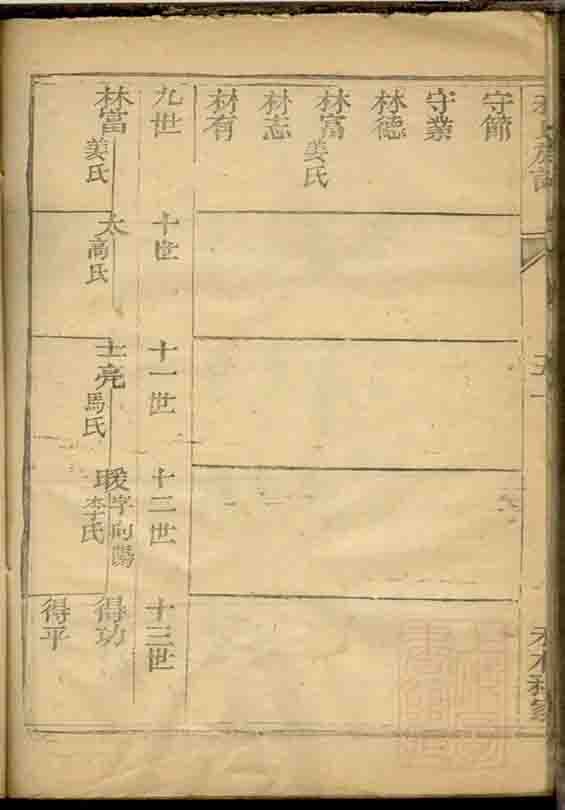 族譜
五十
守節
守業
林德
林富 姜氏
林志
林有
九世
十世
十一世
十二世
十三世
林富 姜氏
太 高氏
士亮 馬氏
暖 字向陽 李氏
得功
得平